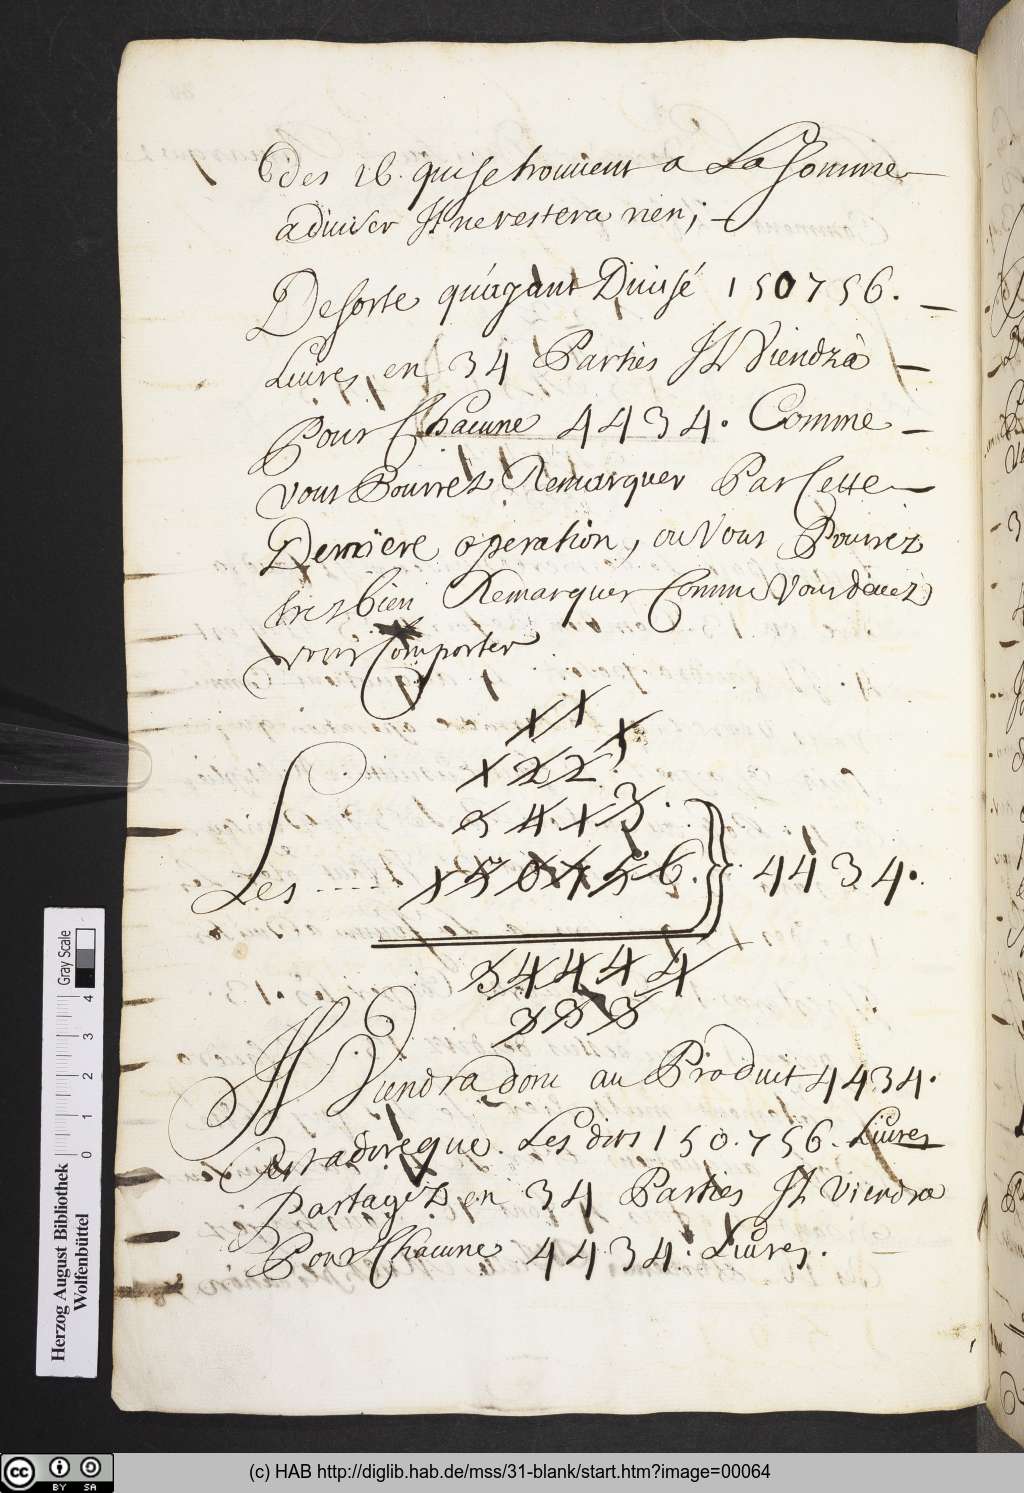 des 16. qui se trouuent a La somme
a diuiser Il ne restera rien;
De sorte qu'ayant Diuisé 150756.
Liures en 34 Parties Il Viendra
Pour Chacune 4434. Comme
vous Pourrez Remarquer Par Cette
Derniere operation, ou Vous Pourrez
tres bien Remarquer Comme Vous deuez
vous Comporter
1 1 1
1 2 2
3 4 1 3.
Les .... 150756. } 4434.
34444
333
Il Viendra donc au Produit 4434.
C'est a dire que Les dits 150.756. Liures
Partagez en 34 Parties Il Viendra
Pour Chacune 4434. Liures.
Herzog August Bibliothek
Wolfenbüttel
Gray Scale
0 1 2 3 4
(c) HAB http://diglib.hab.de/mss/31-blank/start.htm?image=00064
cc BY SA